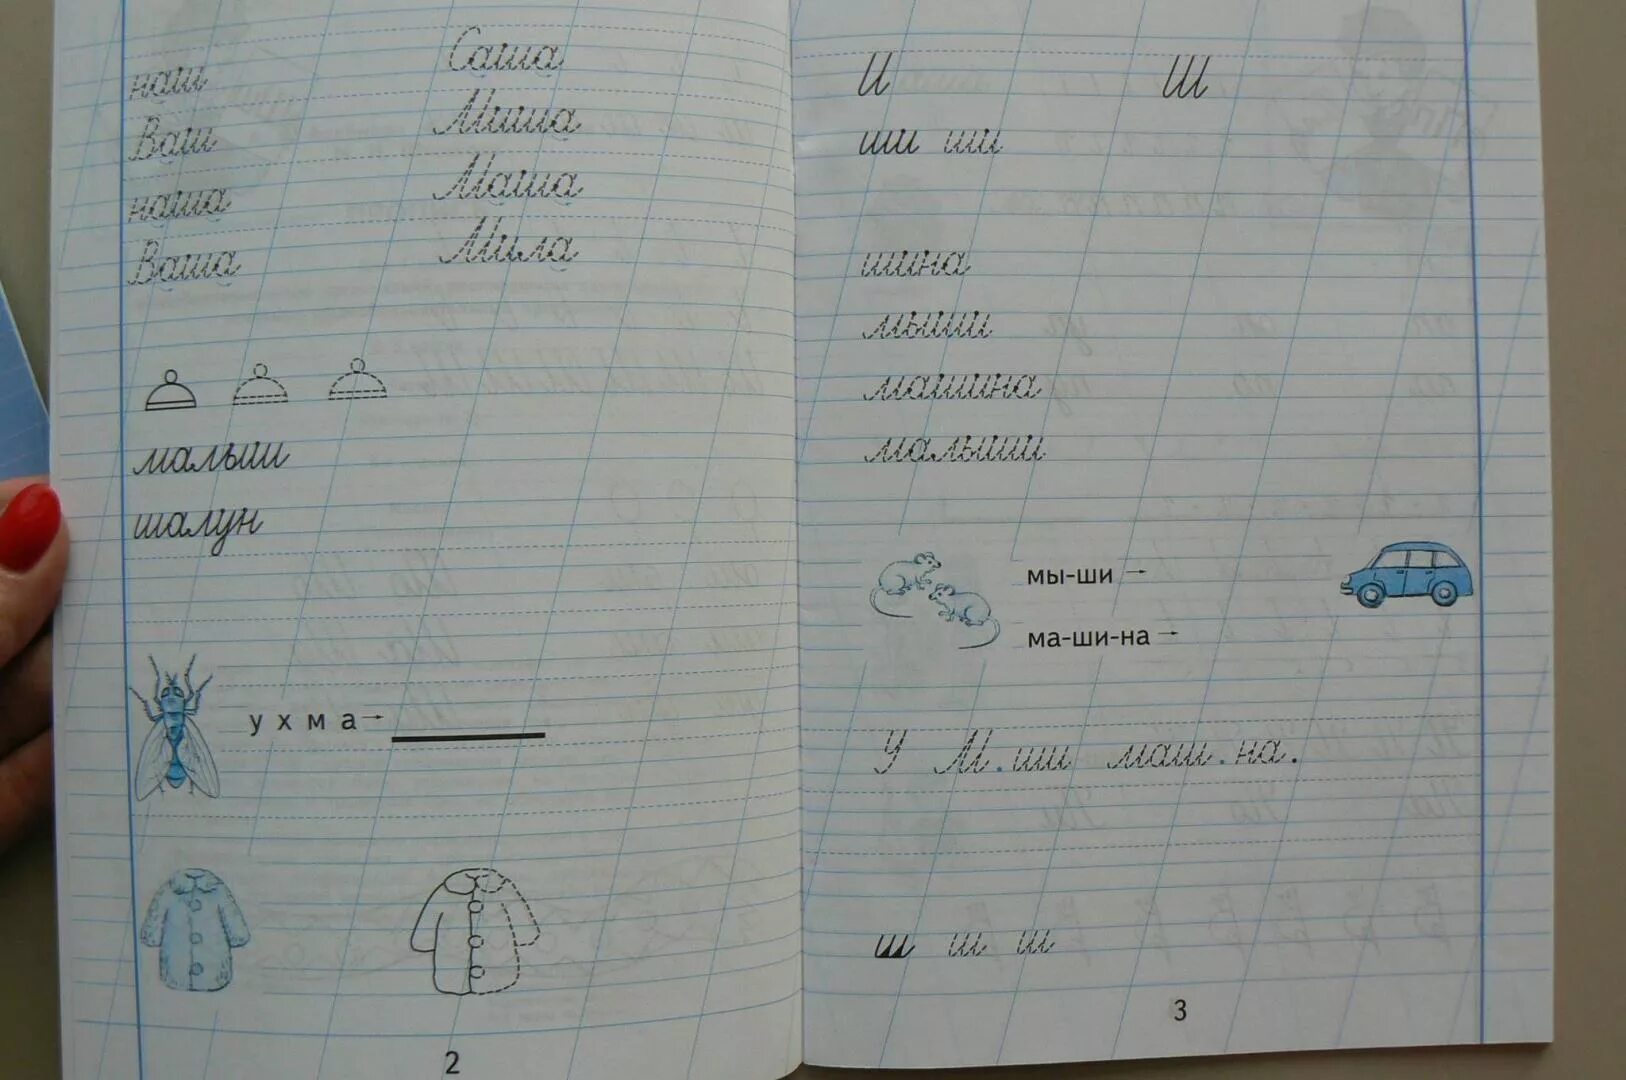 наш
Ваш
наша
Ваша
Саша
Миша
Маша
Мила
малыш
шалун
у х м а→
2
И Ш
ши ши
шина
мыши
машина
малыши
мы-ши →
ма-ши-на →
У М.ши маш.на.
ш ш ш
3